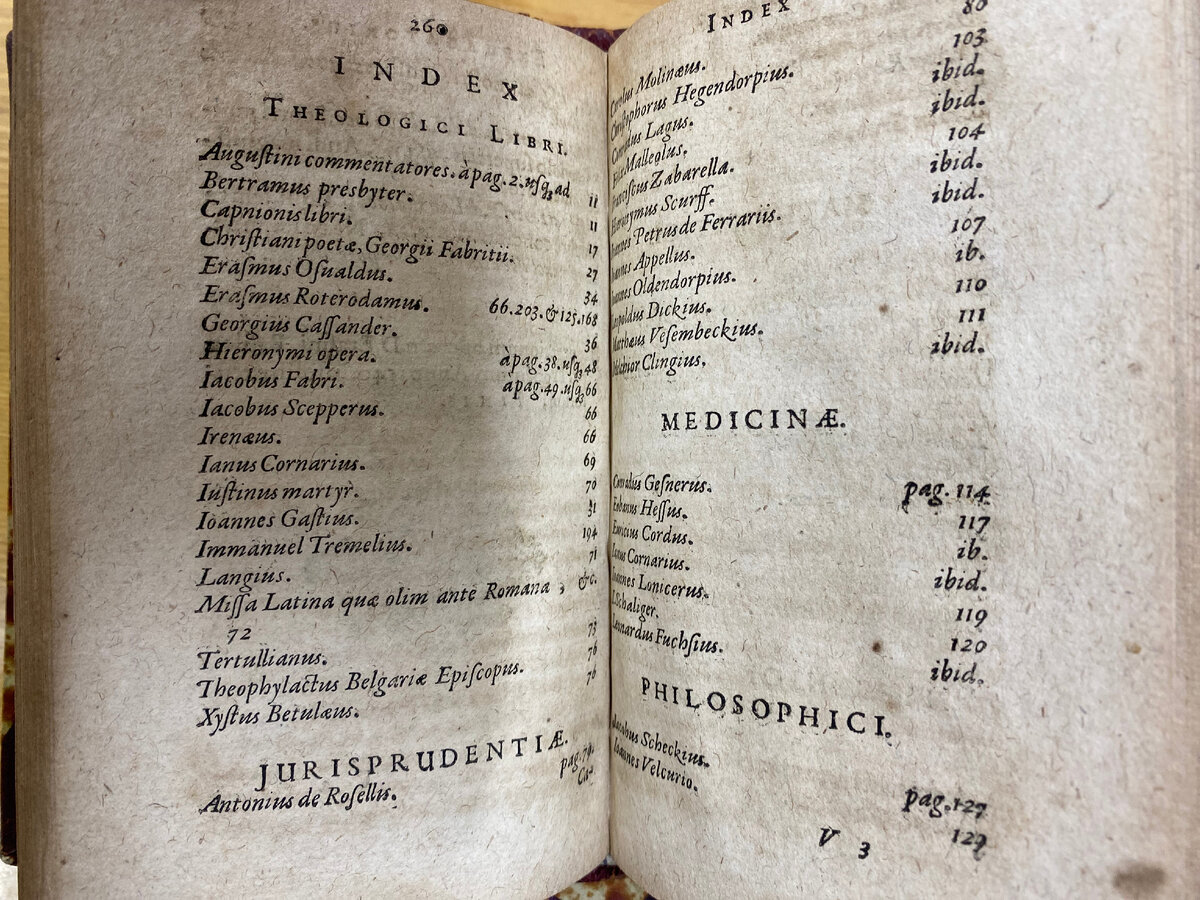 260
INDEX
THEOLOGICI LIBRI.
Auguſtini commentatores. à pag. 2. uſq; ad 11
Bertramus presbyter. 11
Capnionis libri. 17
Chriſtiani poetæ, Georgii Fabritii. 27
Eraſmus Oſualdus. 34
Eraſmus Roterodamus. 66. 203. & 125. 168
Georgius Caſſander. 36
Hieronymi opera. à pag. 38. uſq; 48
Iacobus Fabri. à pag. 49. uſq; 66
Iacobus Scepperus. 66
Irenæus. 66
Ianus Cornarius. 69
Iuſtinus martyr. 70
Ioannes Gaſtius. 31
Immanuel Tremelius. 194
Langius. 71
Miſſa Latina quæ olim ante Romana, &c.
72
Tertullianus. 73
Theophylactus Belgariæ Epiſcopus. 76
Xyſtus Betulæus. 76
JURISPRUDENTIÆ.
Antonius de Roſellis. pag. 79.
Ca-
INDEX
Carolus Molinæus. 80
Chriſtophorus Hegendorpius. 103
Conradus Lagus. ibid.
Felix Malleolus. ibid.
Franciſcus Zabarella. 104
Hieronymus Scurff. ibid.
Ioannes Petrus de Ferrariis. ibid.
Ioannes Appellus. 107
Ioannes Oldendorpius. ib.
Leopoldus Dickius. 110
Matthæus Veſembeckius. 111
Melchior Clingius. ibid.
MEDICINÆ.
Conradus Geſnerus. pag. 114
Eobanus Heſſus. 117
Euricius Cordus. ib.
Ianus Cornarius. ibid.
Ioannes Lonicerus. 119
I. Schaliger. 120
Leonardus Fuchſius. ibid.
PHILOSOPHICI.
Jacobus Scheckius. pag. 127
Ioannes Velcurio. 129
V 3